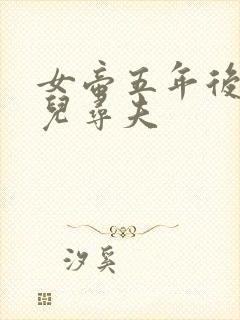 女帝五年後
兒尋夫
汐奚